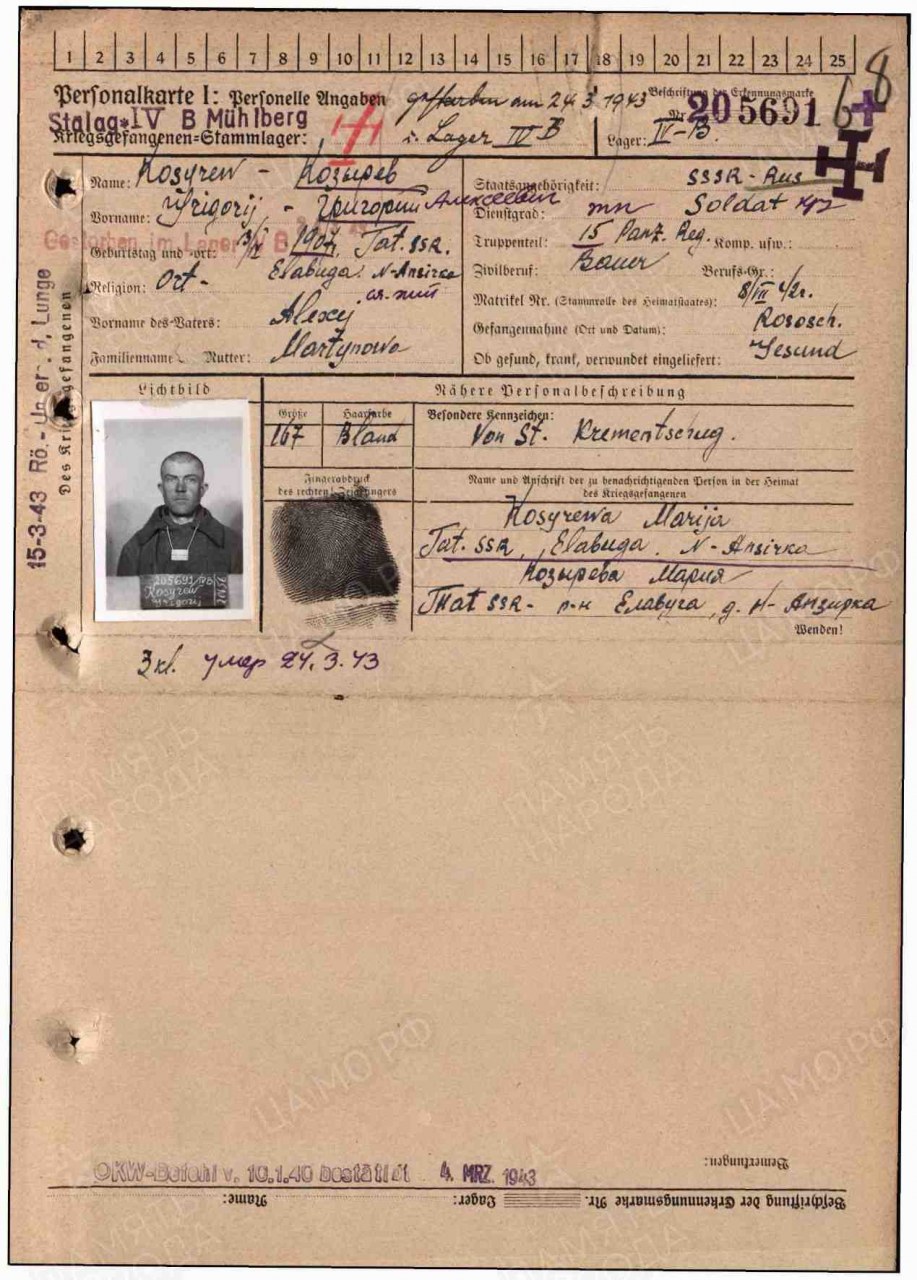 1 2 3 4 5 6 7 8 9 10 11 12 13 14 15 16 17 18 19 20 21 22 23 24 25
68
Personalkarte I: Personelle Angaben
gestorben am 24.3.1943
Beschriftung der Erkennungsmarke
Nr. 205691
Stalag IV B Mühlberg
Kriegsgefangenen=Stammlager:
i. Lager IV B
Lager: IV-B.
Name: Kosyrew - Козырев
Vorname: Grigorij - Григорий Алексеевич
Gestorben im Lager IV B
Geburtstag und -ort: 1904, Tat. SSR.
Elabuga N-Ansirca
Religion: Ort-
Vorname des Vaters: Alexej
Familienname Mutter: Martynowa
Staatsangehörigkeit: SSSR - Rus
Dienstgrad: Soldat кр
Truppenteil: 15 Panz. Reg. Komp. usw.:
Zivilberuf: Bauer Berufs-Gr.:
Matrikel Nr. (Stammrolle des Heimatstaates):
8/VII 42r.
Gefangennahme (Ort und Datum): Rososch.
Ob gesund, krank, verwundet eingeliefert: Gesund
15-3-43 Rö.-Unters. d. Lunge
Des Kriegsgefangenen
Lichtbild
Nähere Personalbeschreibung
Größe
167
Haarfarbe
Bland
Besondere Kennzeichen:
Von St. Krementschug.
Fingerabdruck
des rechten Zeigefingers
Name und Anschrift der zu benachrichtigenden Person in der Heimat
des Kriegsgefangenen
Kosyrewa Marija
Tat. SSR, Elabuga. N-Ansirka
Козырева Мария
Тат SSR- р-н Елабуга, д. Н-Анзирка
Wenden!
205691
Kosyrew
Grigorij
3 кл. умер 24.3.43
ПАМЯТЬ
НАРОДА
ПАМЯТЬ
НАРОДА
ЦАМО.РФ
ЦАМО.РФ
Bemerkungen:
OKW-Befehl v. 10.1.40 bestätigt 4. MRZ. 1943
Beschriftung der Erkennungsmarke Nr. Lager: Name: